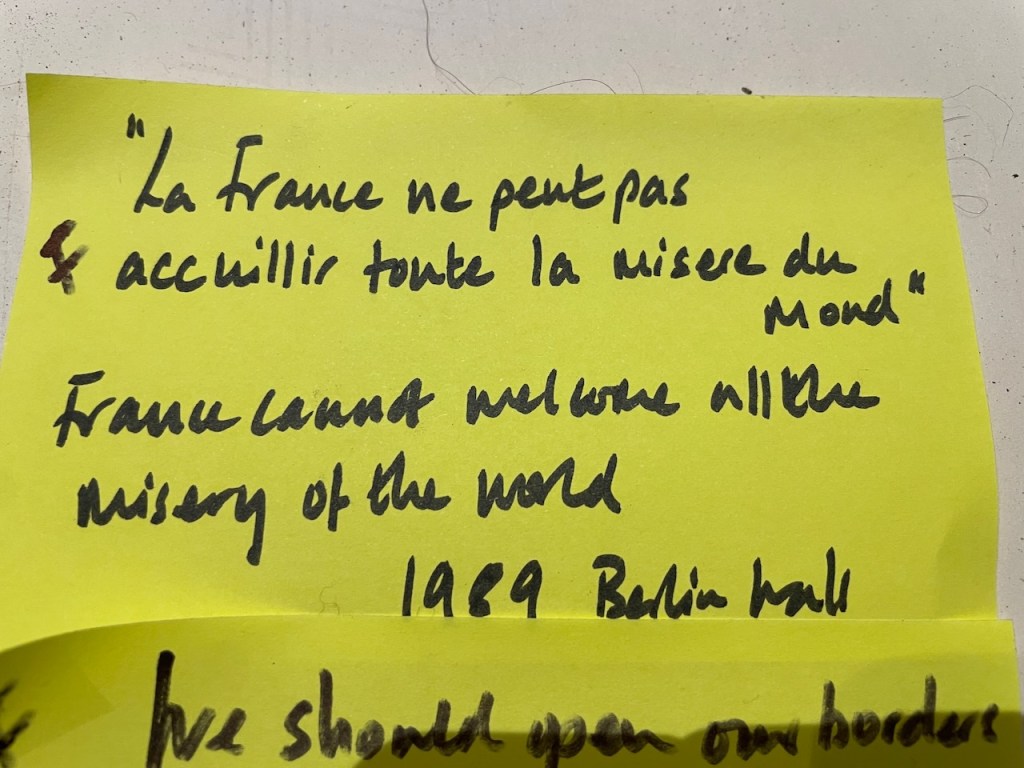 "La France ne peut pas
accuillir toute la misere du
Mond"
France cannot welcome all the
misery of the world
1989 Berlin Wall
We should open our borders